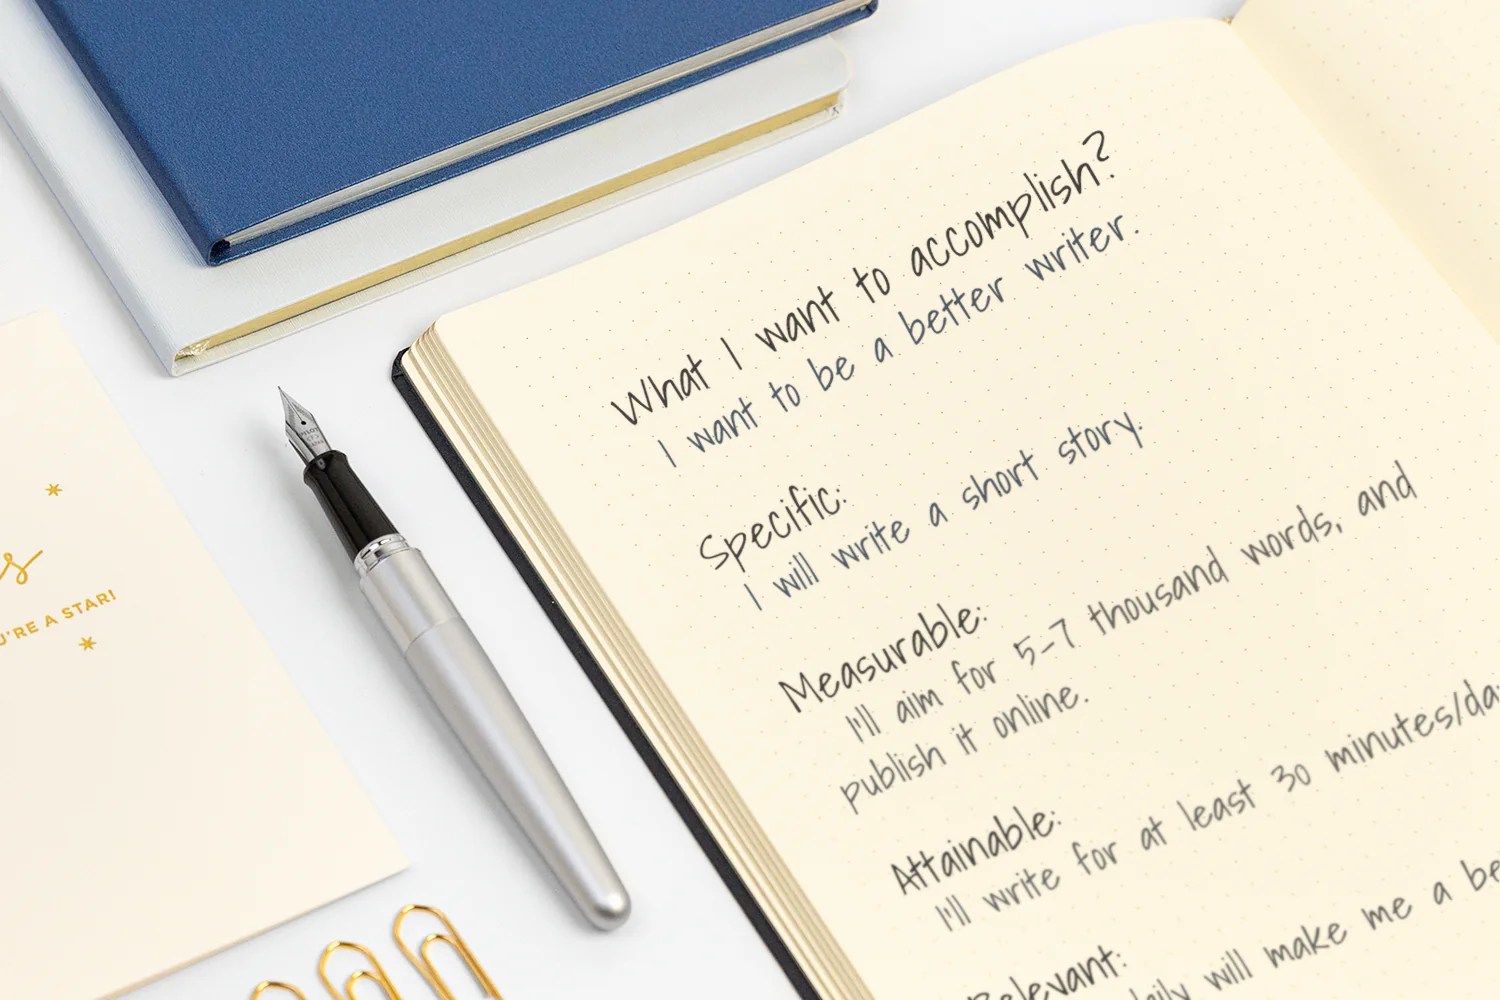 What I want to accomplish?
I want to be a better writer.
Specific:
I will write a short story.
Measurable:
I'll aim for 5-7 thousand words, and
publish it online.
Attainable:
I'll write for at least 30 minutes/da
Relevant:
will make me a be
U'RE A STAR!
PILOT